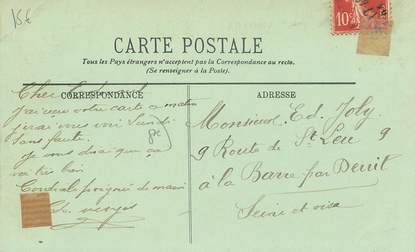 15€
10c
CARTE POSTALE
Tous les Pays étrangers n'acceptent pas la Correspondance au recto.
(Se renseigner à la Poste).
CORRESPONDANCE
ADRESSE
Cher
J'ai reçu votre carte ce matin
j'irai vous voir Lundi
sans faute.
je vous dirai que ça
va très bien
Cordiale poignée de main
8c
Monsieur Ed. Joly
9 Route de St Leu 9
à la Barre par Deuil
Seine et oise